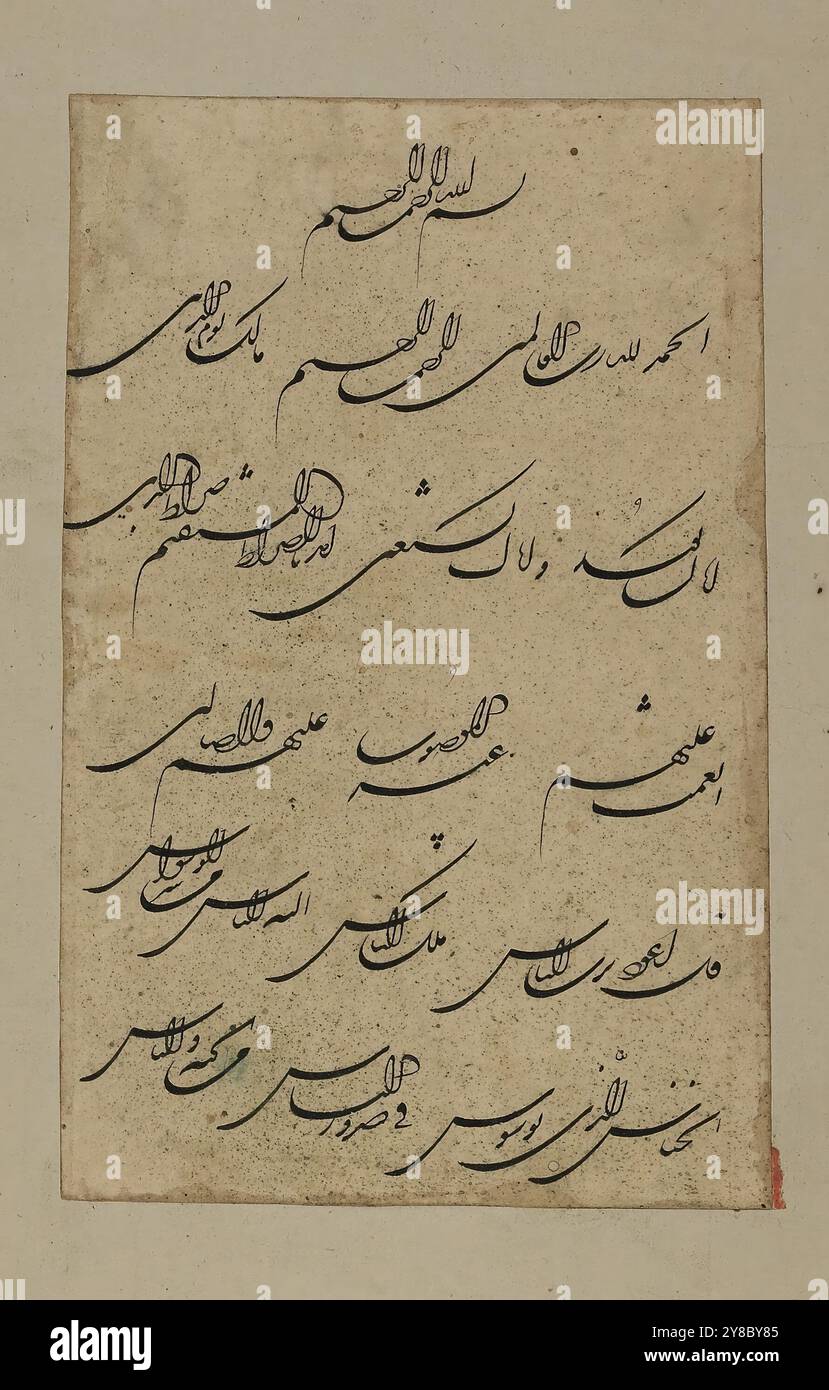 بسم الله الرحمن الرحيم
الحمد لله رب العالمين الرحمن الرحيم مالك يوم الدين
اياك نعبد واياك نستعين اهدنا الصراط المستقيم صراط الذين
انعمت عليهم غير المغضوب عليهم ولا الضالين
قل اعوذ برب الناس ملك الناس اله الناس من شر الوسواس
الخناس الذي يوسوس في صدور الناس من الجنة والناس
alamy
Image ID: 2Y8BY85
www.alamy.com